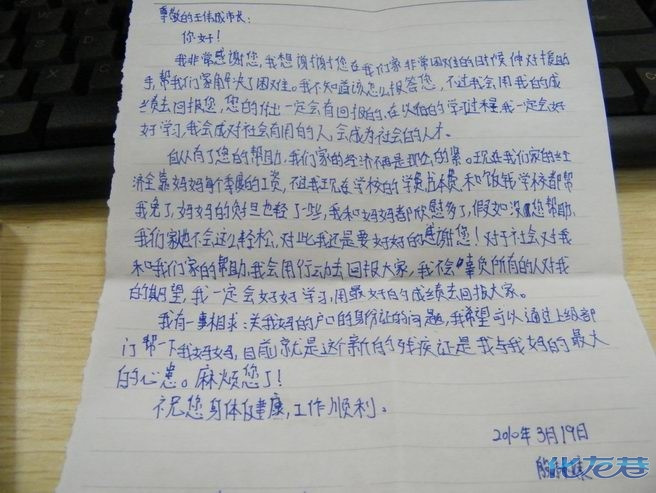 尊敬的王伟成市长:
你好!
我非常感谢您,我想谢谢您在我们家非常困难的时候伸出援的
手,帮我们家解决了困难。我不知道该怎么报答您,不过我会用我的成
绩去回报您,您的付出一定会有回报的,在以后的学习过程,我一定会好
好学习,我会成对社会有用的人,会成为社会的人才。
自从有了您的帮助,我们家的经济不再是那么的紧。现在我们家的经
济全靠妈妈每个季度的工资,不过我现在学校的学费书本费,和饭钱学校都帮
我免了,妈妈的负担也轻了一些,我和妈妈都欣慰多了,假如没有您帮助,
我们家也不会这么轻松,对此我还是要好好的感谢您!对于社会对我
和我们家的帮助,我会用行动去回报大家,我不会辜负所有的人对我
的期望,我一定会好好学习,用最好的成绩去回报大家。
我有一事相求:关我妈的户口的身份证的问题,我希望可以通过上级部
门帮一下我妈妈,目前就是这个新的残疾证是我与我妈的最大
的心患。麻烦您了!
祝您身体健康,工作顺利。
2010年3月19日
化龙巷